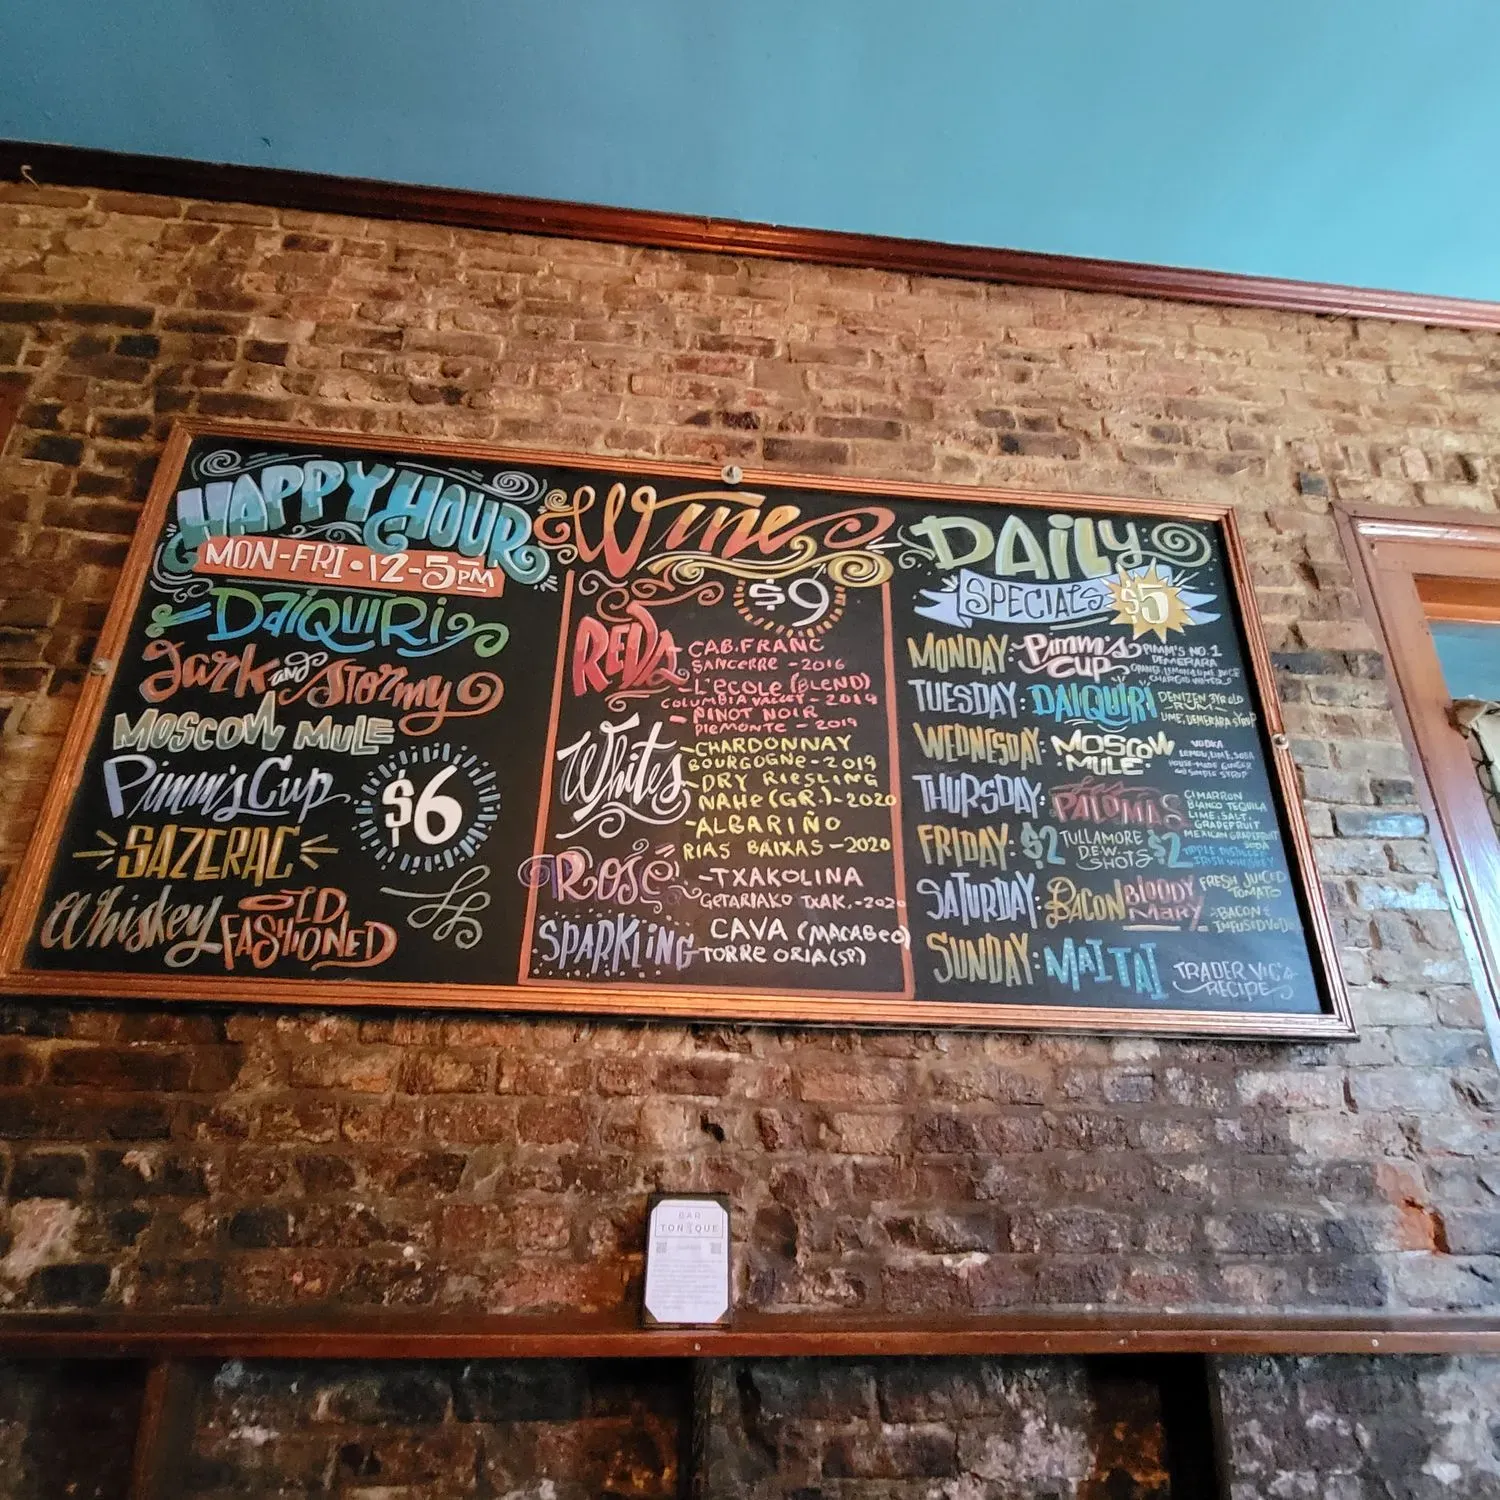 HAPPY HOUR
MON-FRI • 12-5PM
DAIQUIRI
Dark and Stormy
MOSCOW MULE
Pimm's Cup
$6
SAZERAC
Whiskey OLD FASHIONED
Wine
$9
REDS
- CAB. FRANC
SANCERRE - 2016
- L'ECOLE (BLEND)
COLUMBIA VALLEY - 2019
- PINOT NOIR
PIEMONTE - 2019
Whites
- CHARDONNAY
BOURGOGNE - 2019
- DRY RIESLING
NAHE (GR.) - 2020
- ALBARIÑO
RIAS BAIXAS - 2020
ROSÉ
- TXAKOLINA
GETARIAKO TXAK. - 2020
SPARKLING
CAVA (MACABEO)
TORRE ORIA (SP)
DAILY
SPECIALS $5
MONDAY: Pimm's CUP
PIMM'S NO. 1
DEMERARA
TUESDAY: DAIQUIRI
DENIZEN 3YR OLD
RUM
LIME, DEMERARA SYRUP
WEDNESDAY: MOSCOW MULE
VODKA
LEMON, LIME, SODA
HOUSE-MADE GINGER
and SIMPLE SYRUP
THURSDAY: PALOMAS
CIMARRON
BLANCO TEQUILA
LIME, SALT,
GRAPEFRUIT
MEXICAN GRAPEFRUIT
SODA
FRIDAY: $2 TULLAMORE DEW SHOTS $2
TRIPLE DISTILLED
IRISH WHISKEY
SATURDAY: BACON BLOODY MARY
FRESH JUICED
TOMATO
BACON
INFUSED VODKA
SUNDAY: MAI TAI
TRADER VIC'S
RECIPE
BAR
TONIQUE